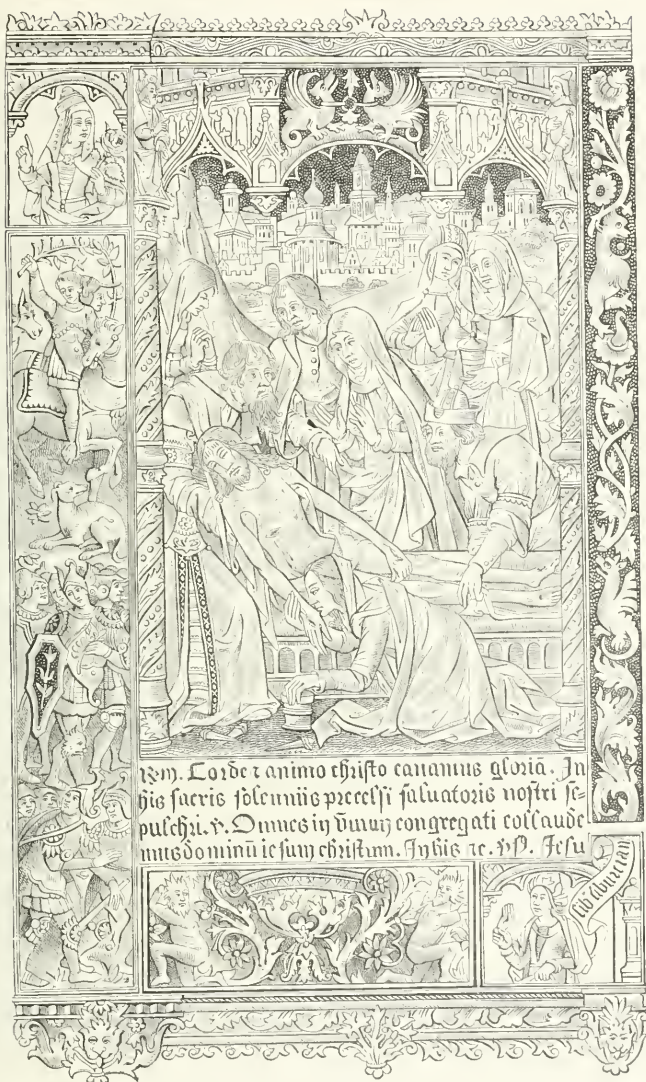 Rym. Corde ⁊ animo christo canamus gloriā. In
his sacris solenniis precelsi saluatoris nostri se-
pulchri. ℣. Omnes in vnum congregati collaude
mus dominū iesum christum. In his ⁊c. Jesu
sib